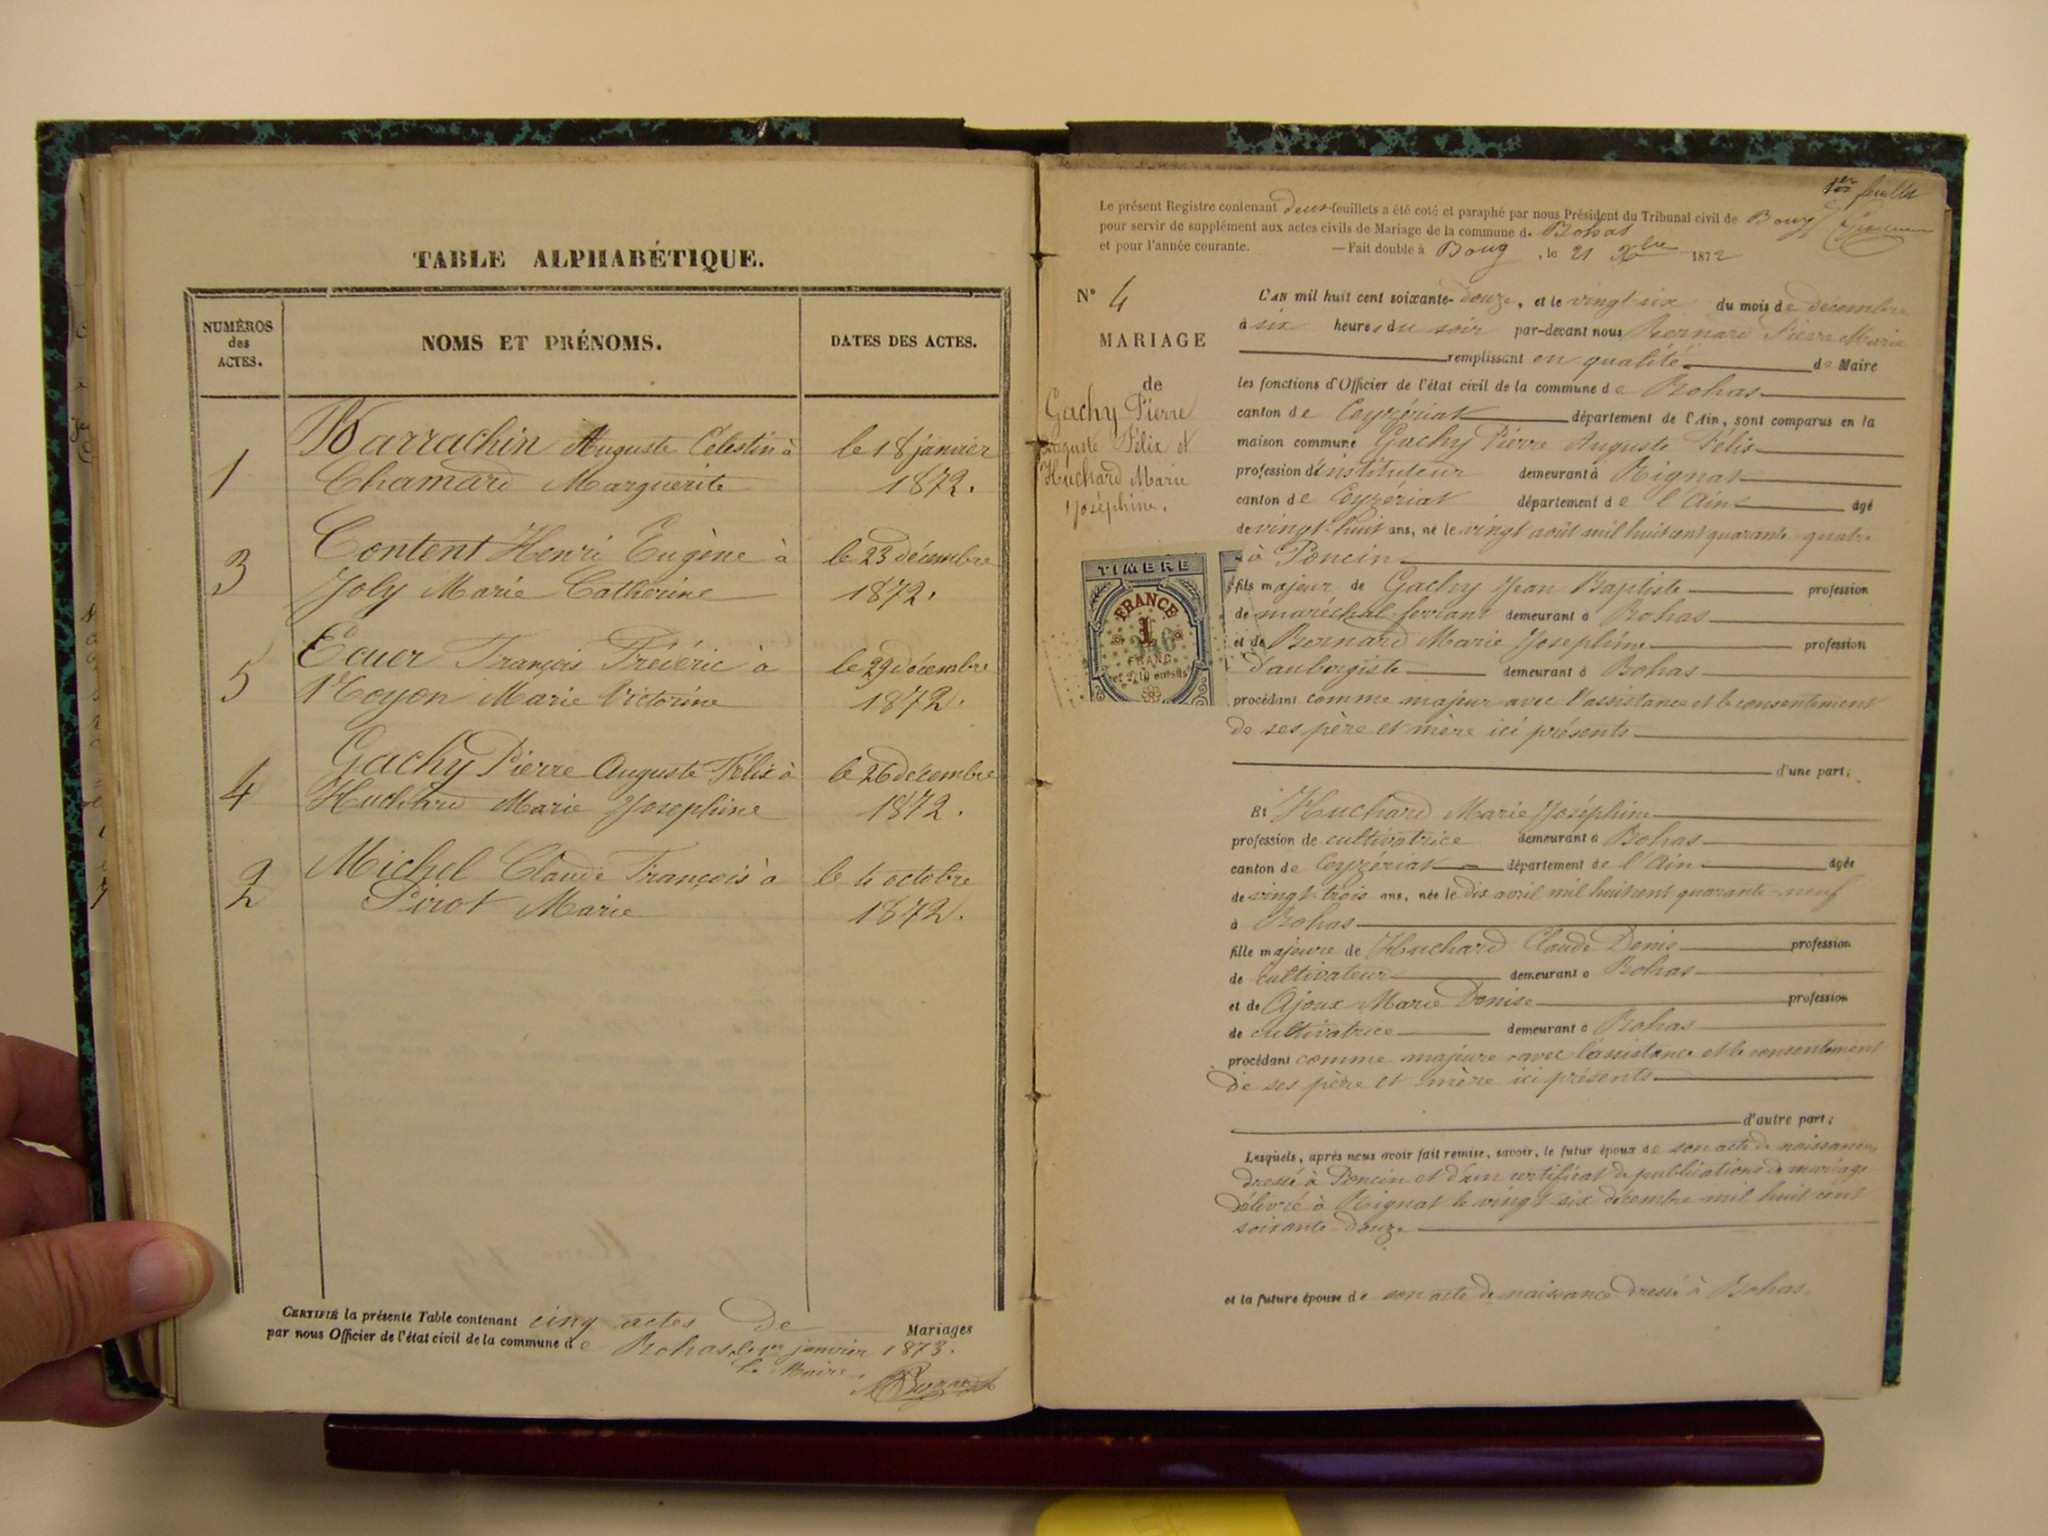 TABLE ALPHABÉTIQUE.
NUMÉROS des ACTES.
NOMS ET PRÉNOMS.
DATES DES ACTES.
1 Barrachin Auguste Célestin à le 18 janvier
Chamard Marguerite 1872.
3 Content Henri Eugène à le 23 décembre
Joly Marie Catherine 1872.
5 Ecuer François Fréderic à le 29 décembre
Moyon Marie Victorine 1872.
4 Gachy Pierre Auguste Félix à le 26 décembre
Huchard Marie Josephine 1872.
2 Michel Claude François à le 4 octobre
Pirot Marie 1872.
CERTIFIÉ la présente Table contenant cinq actes de Mariages
par nous Officier de l'état civil de la commune de Bohas, le 1er janvier 1873.
Le Maire,
1er feuillet
Le présent Registre contenant deux feuillets a été coté et paraphé par nous Président du Tribunal civil de Bourg
pour servir de supplément aux actes civils de Mariage de la commune de Bohas
et pour l'année courante. — Fait double à Bourg, le 21 Xbre 1872
N° 4
MARIAGE
de
Gachy Pierre
Auguste Félix et
Huchard Marie
Joséphine.
TIMBRE
FRANCE
1
FRANC
L'AN mil huit cent soixante-douze, et le vingt six du mois de décembre
à six heures du soir par-devant nous Bernard Pierre Marie
remplissant en qualité de Maire
les fonctions d'Officier de l'état civil de la commune de Bohas
canton de Ceyzériat département de l'Ain, sont comparus en la
maison commune Gachy Pierre Auguste Félix
profession d'instituteur demeurant à Rignat
canton de Ceyzériat département de l'Ain âgé
de vingt-huit ans, né le vingt août mil huit cent quarante quatre
à Poncin
fils majeur de Gachy Jean Baptiste profession
de maréchal ferrant demeurant à Bohas
et de Bernard Marie Josephine profession
d'aubergiste demeurant à Bohas
procédant comme majeur avec l'assistance et le consentement
de ses père et mère ici présents
d'une part;
Et Huchard Marie Joséphine
profession de cultivatrice demeurant à Bohas
canton de Ceyzériat département de l'Ain âgée
de vingt-trois ans, née le dix avril mil huit cent quarante-neuf
à Bohas
fille majeure de Huchard Claude Denis profession
de cultivateur demeurant à Bohas
et de Ajoux Marie Denise profession
de cultivatrice demeurant à Bohas
procédant comme majeure avec l'assistance et le consentement
de ses père et mère ici présents
d'autre part;
Lesquels, après nous avoir fait remise, savoir, le futur époux de son acte de naissance
dressé à Poncin et d'un certificat de publications de mariage
délivré à Rignat le vingt six décembre mil huit cent
soixante douze
et la future épouse de son acte de naissance dressé à Bohas.